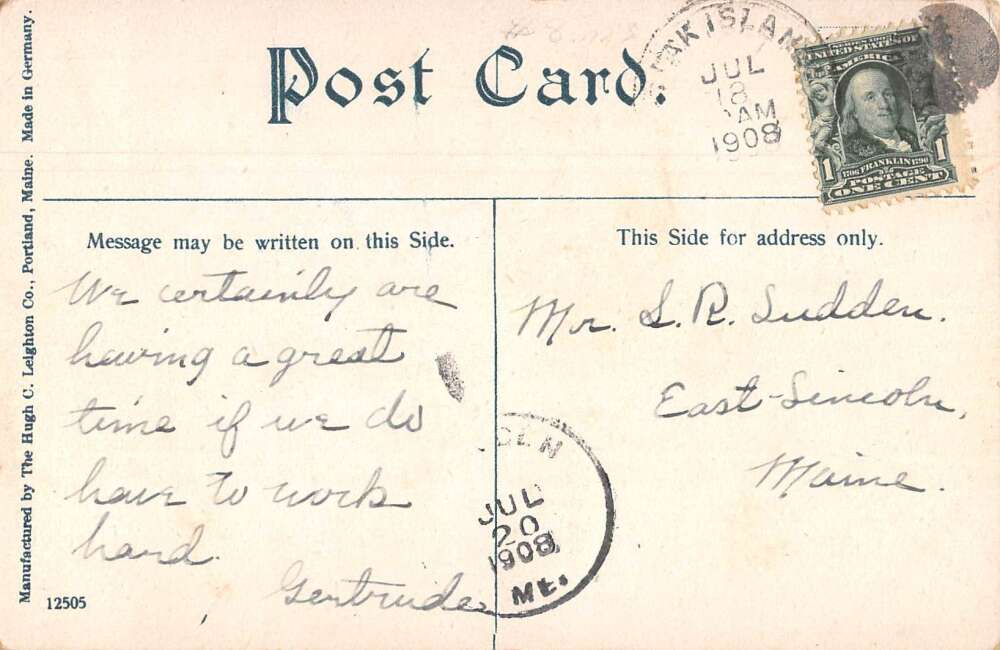 Post Card.
JUL
18
AM
1908
SERIES 1902
UNITED STATES OF
AMERICA
1706 FRANKLIN 1790
1 1
POSTAGE
ONE CENT
Manufactured by The Hugh C. Leighton Co., Portland, Maine. Made in Germany.
Message may be written on this Side.
We certainly are
having a great
time if we do
have to work
hard.
Gertrude
12505
This Side for address only.
Mr. S. R. Sudden.
East-Lincoln,
Maine.
JUL
20
1908
ME.